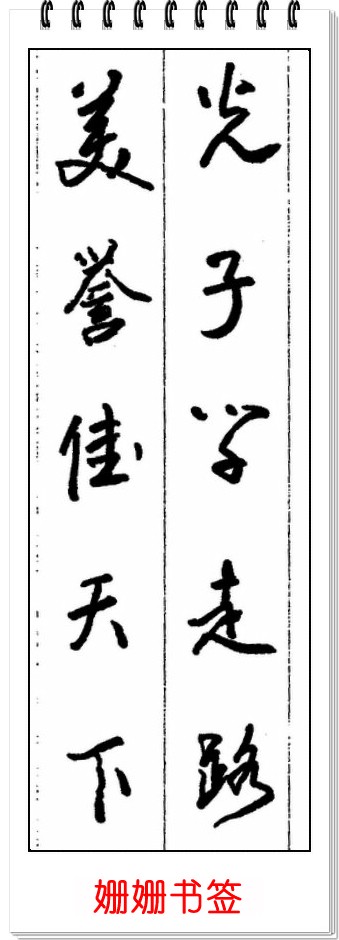 光子学走路
美誉佳天下
姗姗书签